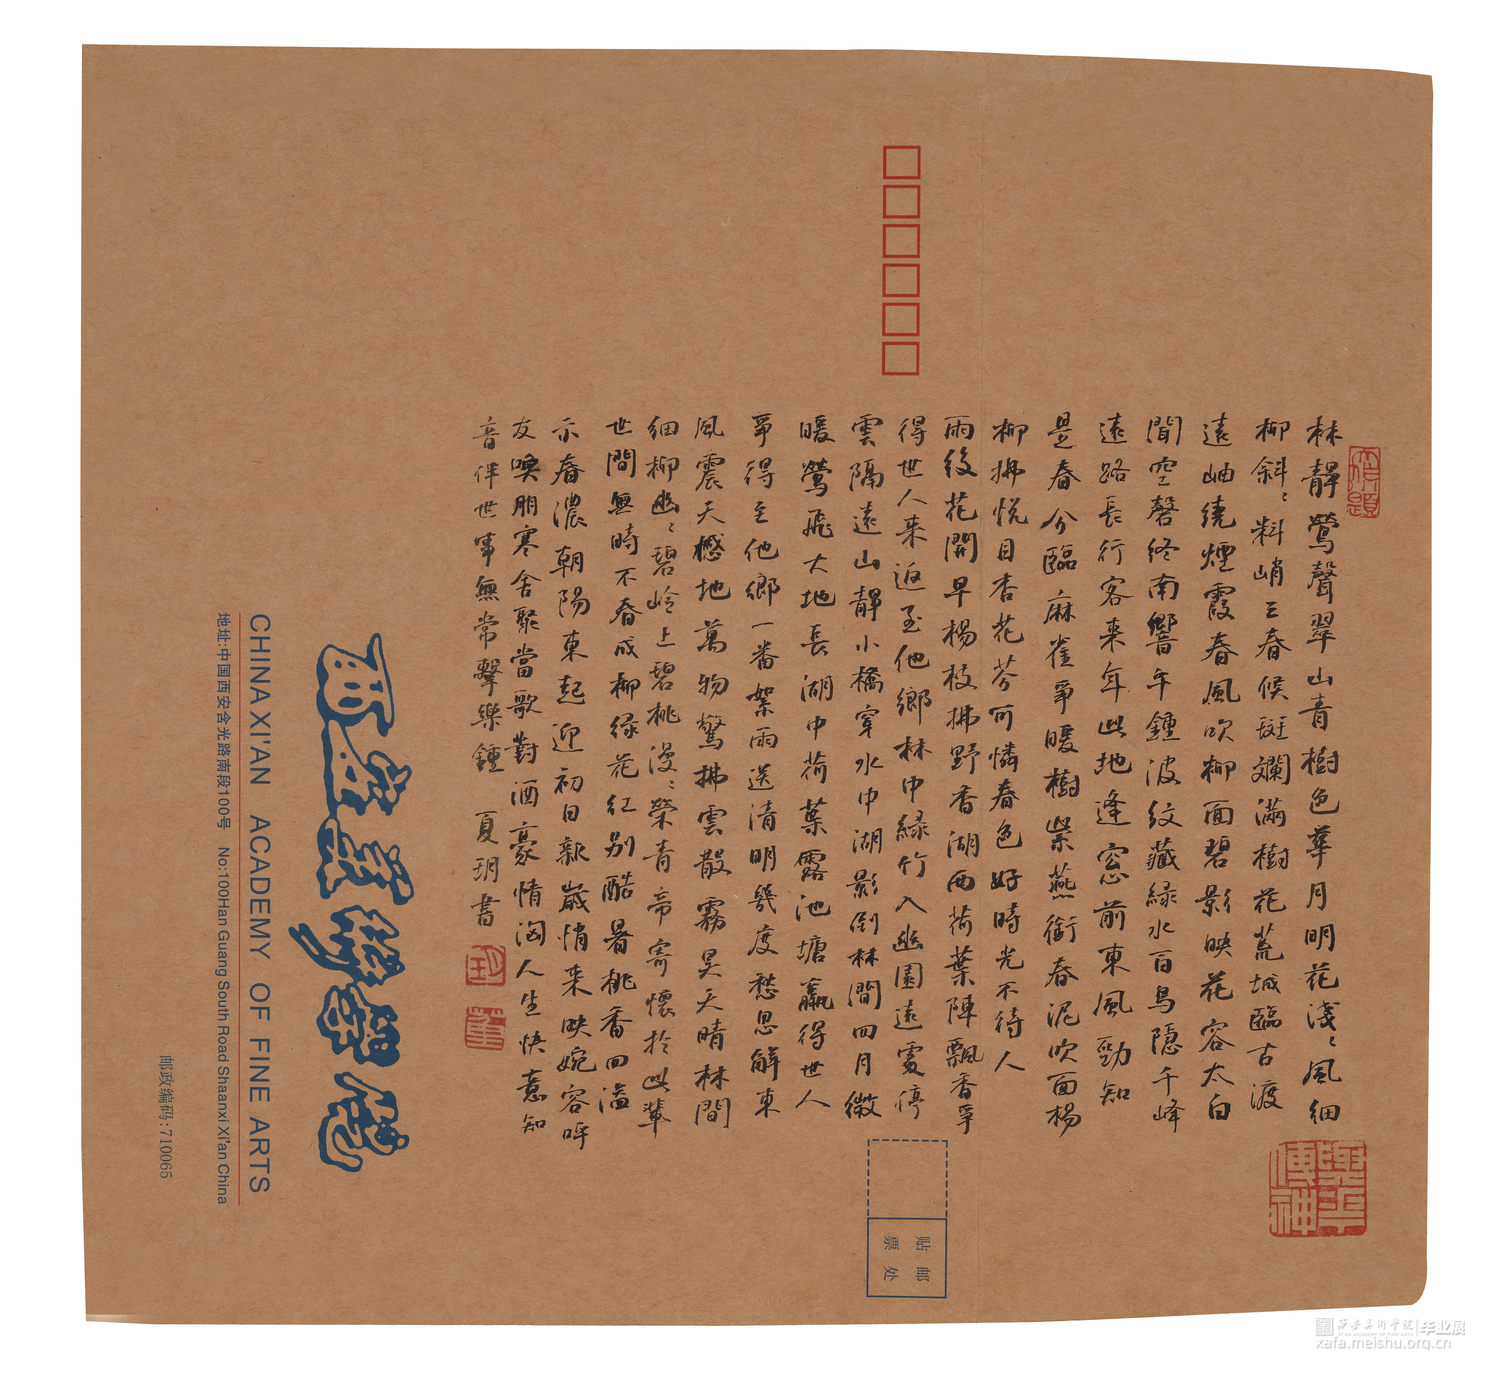 林静鶯聲翠山青樹色華月明花淺〻風細
柳斜〻料峭三春候斑斕滿樹花荒城臨古渡
遠岫繞煙霞春風吹柳面碧影映花容太白
聞空磬終南響午鍾波紋藏綠水百鳥隱千峰
遠路長行客来年此地逢窓前東風勁知
是春分臨麻雀爭暖樹紫燕銜春泥吹面楊
柳拂悅目杏花芬可憐春色好時光不待人
雨後花開早楊枝拂野香湖西荷葉陣飄香爭
得世人来返至他鄉林中綠竹入幽園遠處停
雲隔遠山靜小橋穿水中湖影倒林澗四月微
暖鶯飛大地長湖中荷葉露池塘贏得世人
爭得至他鄉一番絮雨送清明幾度愁思解東
風震天撼地萬物驚拂雲散霧昊天晴林間
細柳幽〻碧岭上碧桃漫〻榮青帝寄懷於此輩
世間無時不春成柳绿花红别酷暑桃香四溢
示春濃朝陽東起迎初日新歲悄来映婉容呼
友喚朋寒舍聚當歌對酒豪情洶人生快意知
音伴世事無常擊樂鍾 夏玥書
西安美術學院
CHINA XI'AN ACADEMY OF FINE ARTS
地址:中国西安含光路南段100号 No:100Han Guang South Road Shaanxi Xi'an China
邮政编码:710065
贴邮
票处
西安美术学院 毕业展
xafa.meishu.org.cn